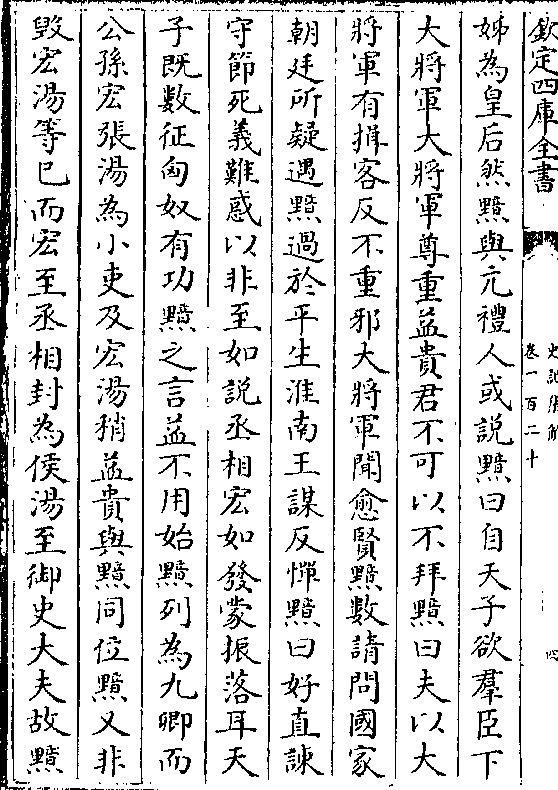 欽定四庫全書
史記集解
卷一百二十
四
姊為皇后然黯與亢禮人或說黯曰自天子欲羣臣下
大將軍大將軍尊重益貴君不可以不拜黯曰夫以大
將軍有揖客反不重邪大將軍聞愈賢黯數請問國家
朝廷所疑遇黯過於平生淮南王謀反憚黯曰好直諫
守節死義難惑以非至如說丞相宏如發蒙振落耳天
子既數征匈奴有功黯之言益不用始黯列為九卿而
公孫宏張湯為小吏及宏湯稍益貴與黯同位黯又非
毀宏湯等巳而宏至丞相封為侯湯至御史大夫故黯